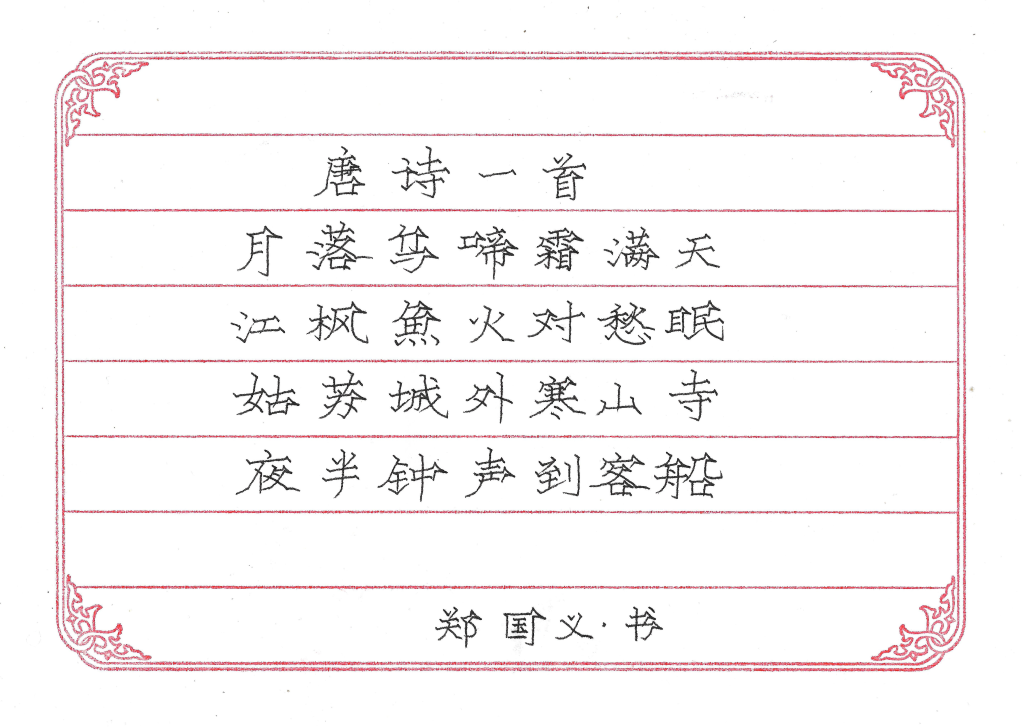 唐诗一首
月落乌啼霜满天
江枫魚火对愁眠
姑苏城外寒山寺
夜半钟声到客船
郑国义·书